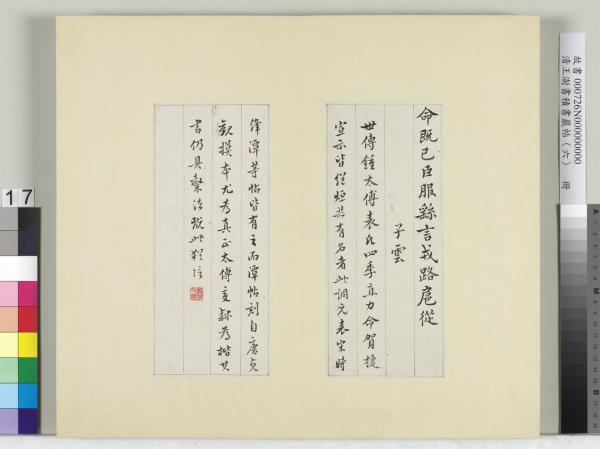 命既已臣服繇言戎路扈從
子雲
世傳鍾太傅表凡四季直力命賀捷
宣示皆從烜其有名者此調元表宋時
絳潭等帖皆有之而潭帖刻自唐貞
觀摸本尤為真正太傅變隸為楷其
書仍具隸法玩此猶信
故書 000726N000000000
清王澍書積書巖帖（六） 冊
17
A
B